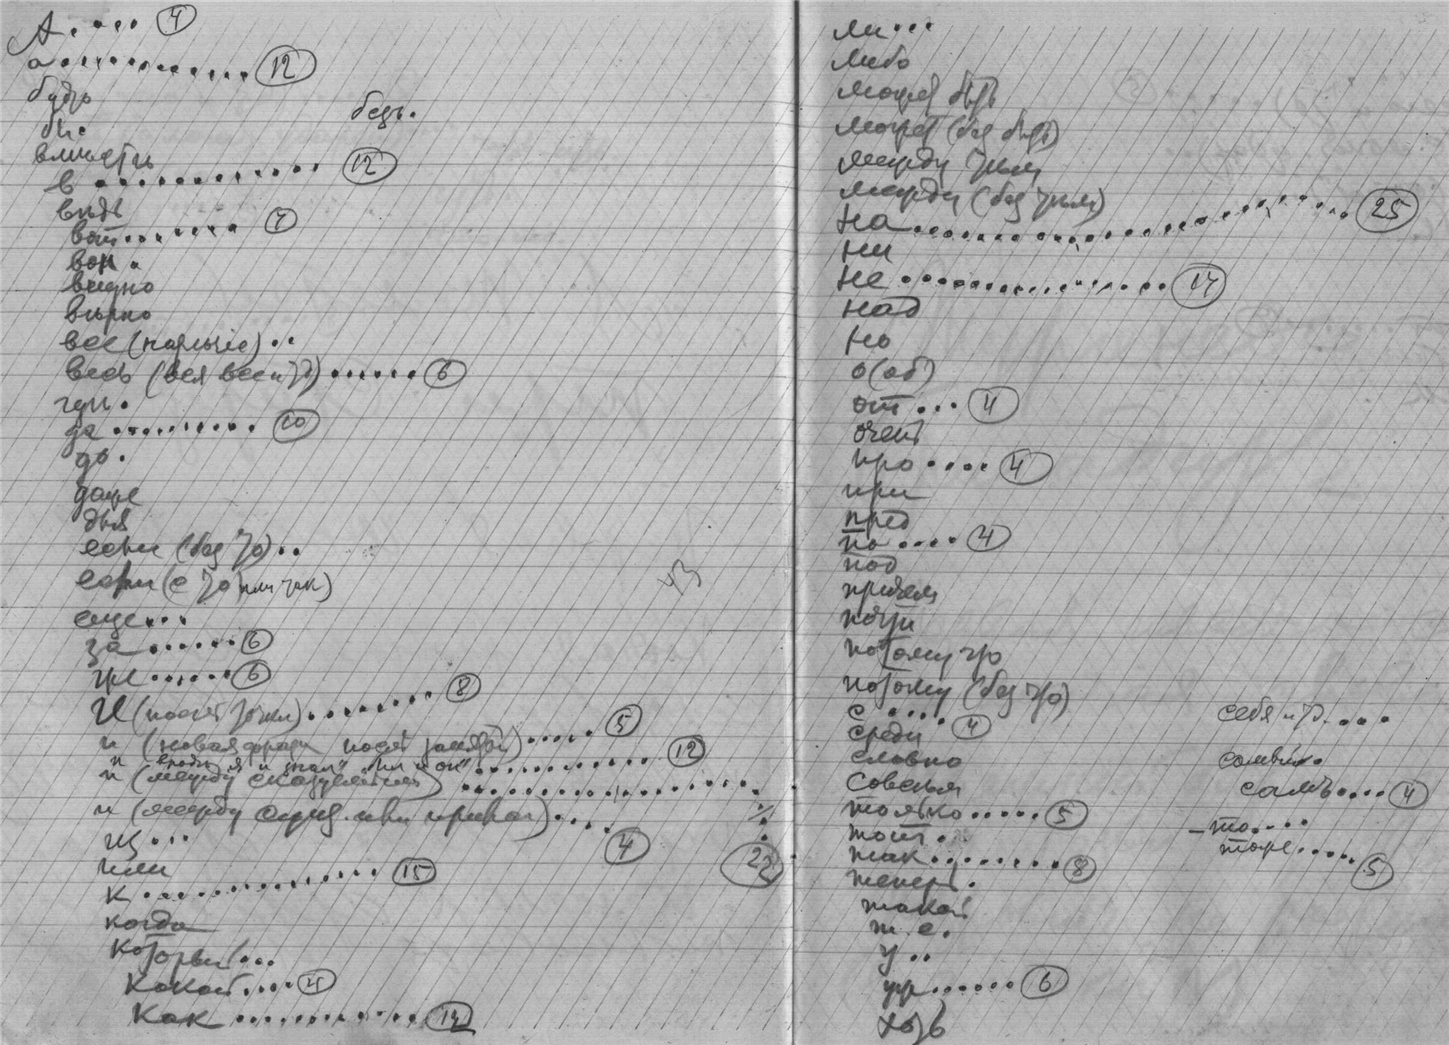 А. . . . . 4
а. . . . . . . . . . . . 12
будто
бы. безъ.
вместѣ
в . . . . . . . . . . . . 12
вѣдь
вот. . . . . . . 7
вон .
видно
вѣрно
все (нарѣчіе) . .
весь (вся все и т д) . . . . . . 6
гдѣ .
да . . . . . . . . . . 10
до .
даже
для
если (без то) . .
если (с то или так)
еще . . .
за . . . . . . 6
же . . . . . . 6
И (послѣ точки) . . . . . . . . 8
и (новая фраза послѣ запятой) . . . . . 5
и вродѣ „я и знал" „он и он" . . . . . . . . . . . . 12
и (между сказуемыми) . . . . . . . . . . . . . . . . . . . . . . 22
и (между сущ. или прилаг) . . . . 4
из . . .
или
к . . . . . . . . . . . . . . . 15
когда
который . . .
какой . . . . 4
как . . . . . . . . . . . . . . 14
43
ли . . .
либо
может быть
может (без быть)
между тѣм
между (без тѣм)
на . . . . . . . . . . . . . . . . . . . . . . . . . 25
ни
не . . . . . . . . . . . . . . . . . 17
над
но
о (об)
от . . . . 4
очень
про . . . . 4
при
пред
по . . . . 4
под
причем
почти
потому что
потому (без что)
с . . . . 4
среди
словно
совсѣм
только . . . . . 5
тот . .
так . . . . . . . . 8
теперь .
такой
т. е.
у . .
уж . . . . . . 6
хоть
себя и т. д. . . . .
самъ . . . . 4
– то. . . .
тоже . . . . . 5